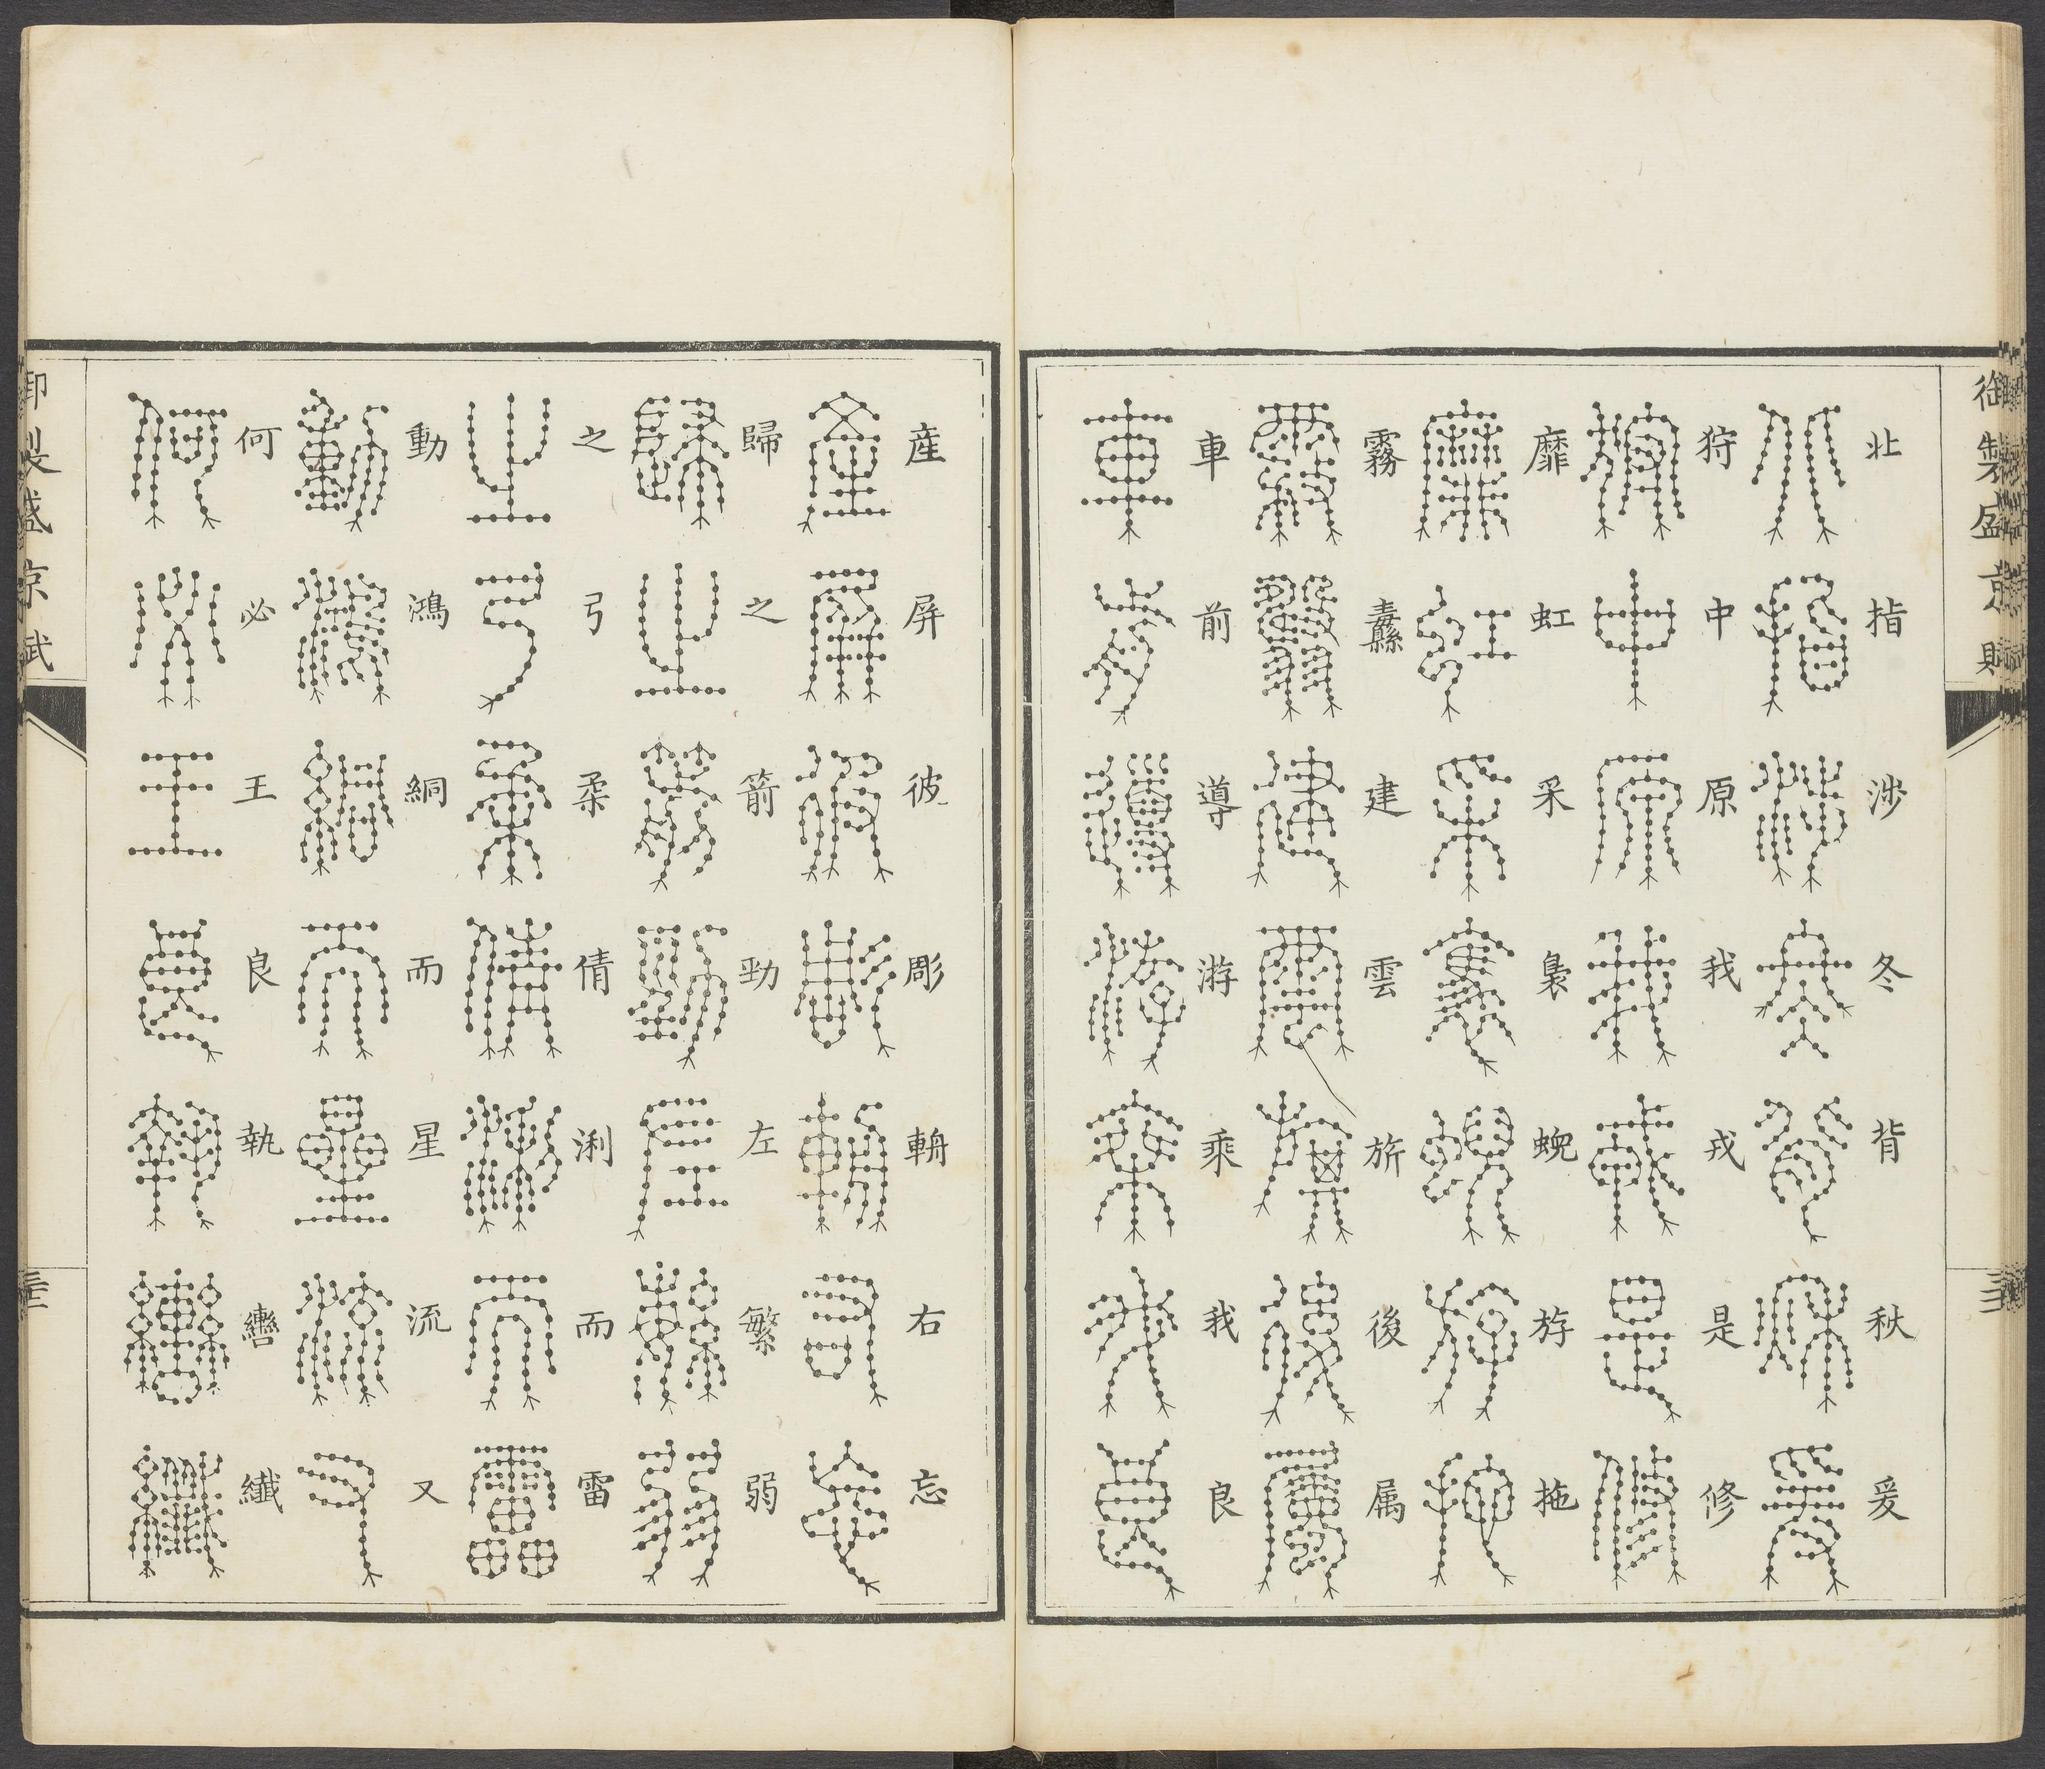 御製盛京賦
北指涉冬背秋爰
狩中原我戎是修
靡虹采裊蜺斿拖
霧纛建雲旂後属
車前導游乘我良
産屏彼彫輈右忘
歸之箭勁左繁弱
之弓柔倩浰而雷
動鴻絅而星流又
何必王良執轡纖
御製盛京賦